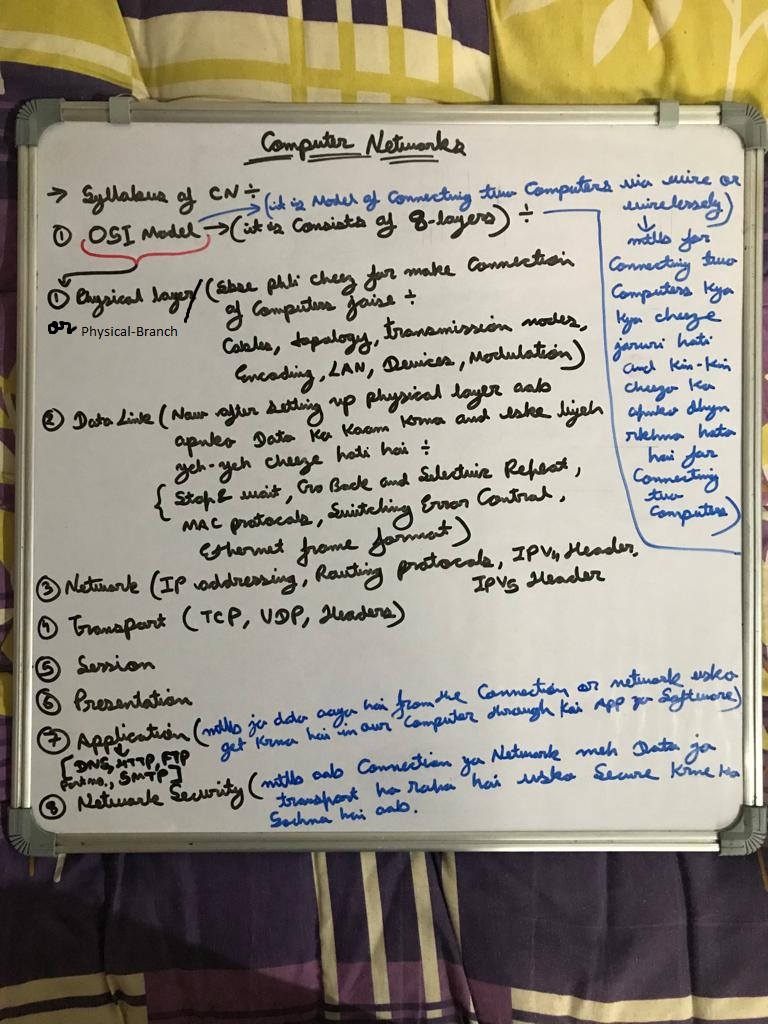 Computer Networks
→ Syllabus of CN ÷
(it is Model of Connecting two Computers via wire or wirelessly)
① OSI Model → (it is Consists of 8-layers) ÷
↓
mtlb for
Connecting two
Computers Kya
Kya cheeze
jaruri hoti
and Kin-Kin
cheezo Ka
apnko dhyn
rkhna hota
hai for
Connecting
two
Computers)
① Physical layer / (Sbse phli cheez for make Connection
or Physical-Branch
of Computers jaise ÷
Cables, topology, transmission nodes,
Encoding, LAN, Devices, Modulation)
② Data Link (Now after setting up physical layer aab
apnko Data Ka Kaam Krna and eske liyeh
yeh-yeh cheeze hoti hai ÷
{ Stop & wait, Go Back and Selective Repeat,
MAC protocols, Switching Error Control,
Ethernet frame format)
③ Network (IP addressing, Routing protocols, IPV4 Header,
IPV5 Header
④ Transport (TCP, UDP, Headers)
⑤ Session
⑥ Presentation
⑦ Application (mtlb jo data aaya hai from the Connection or network usko
get Krna hai in our Computer through Koi App ya Software)
[DNS, HTTP, FTP
Port no., SMTP]
⑧ Network Security (mtlb aab Connection ya Network meh Data jo
transport ho raha hai usko Secure Krne Ka
Sochna hai aab.